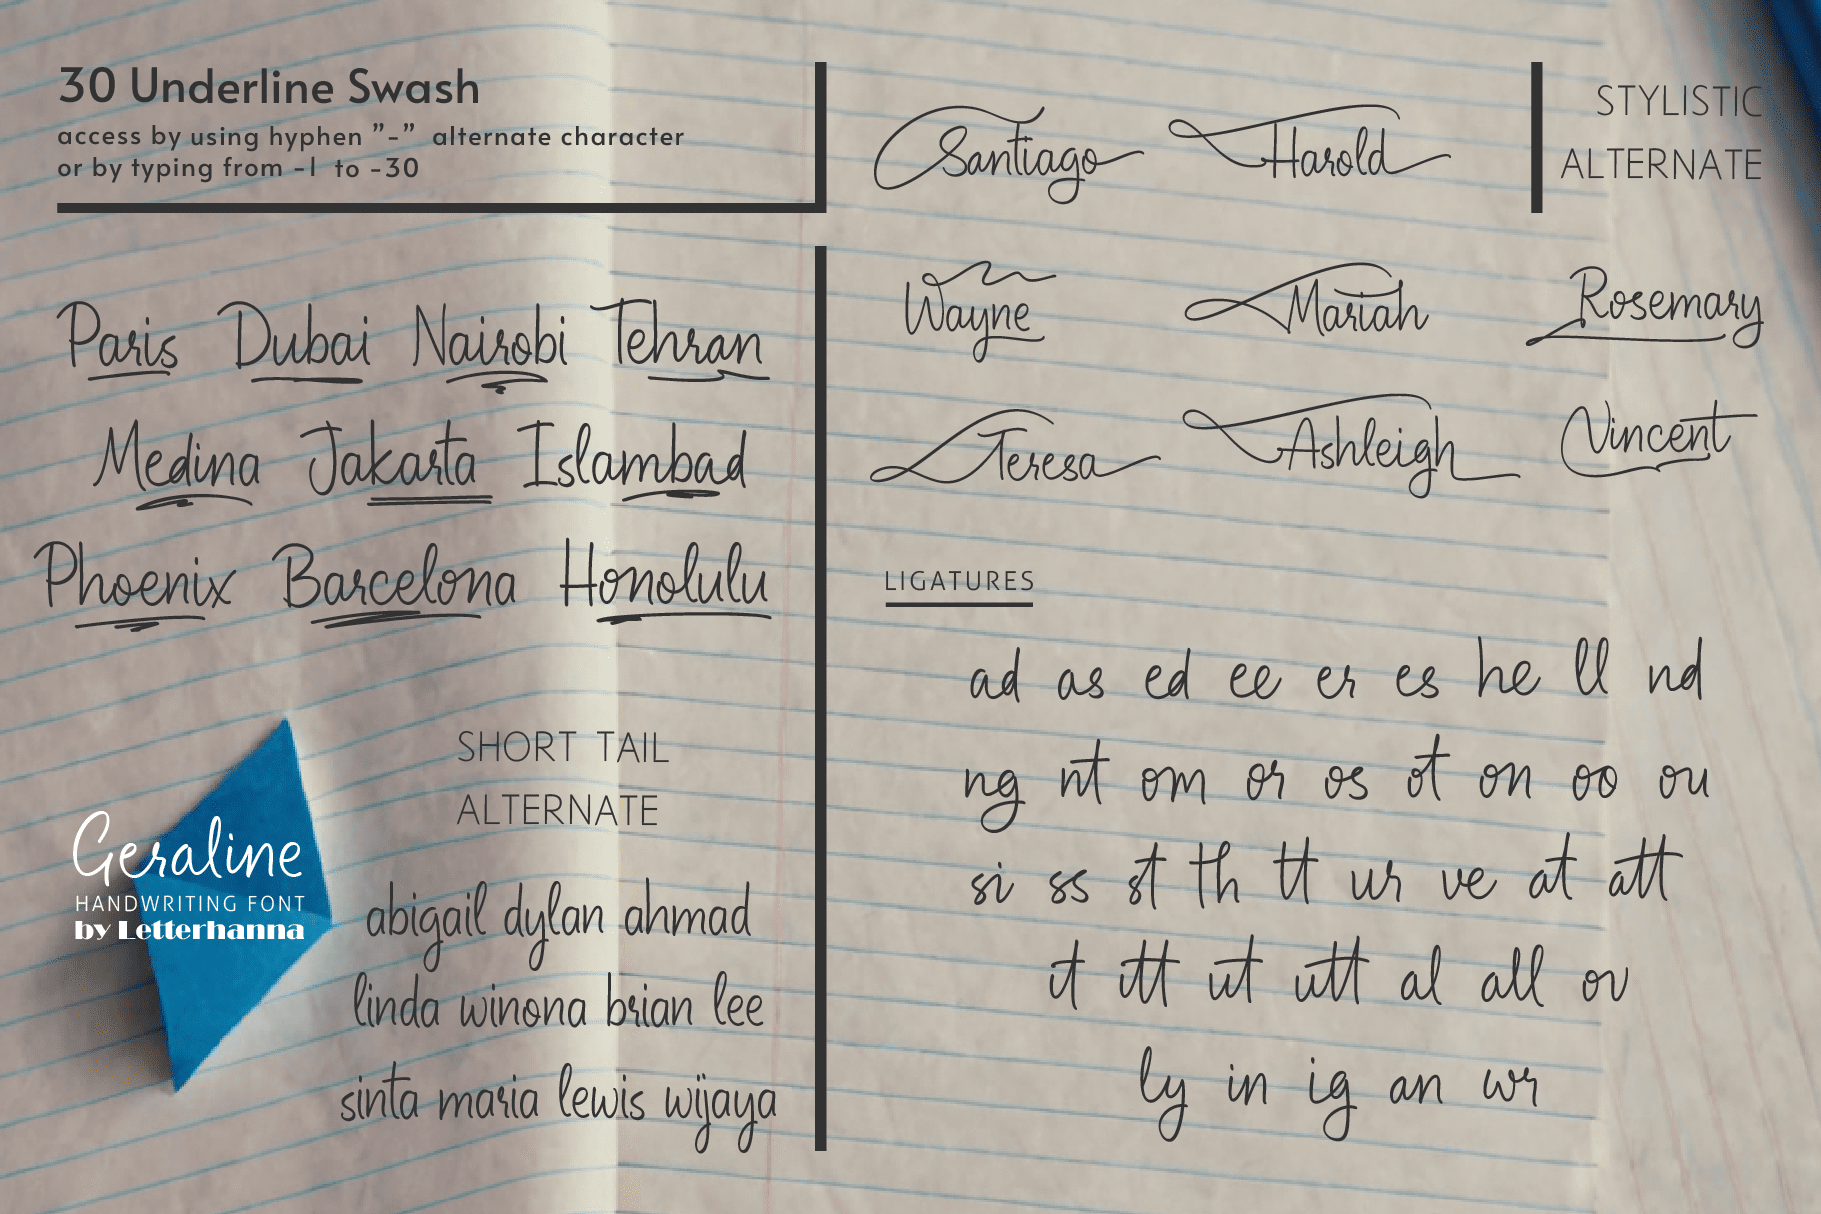 30 Underline Swash
access by using hyphen ”-” alternate character
or by typing from -1 to -30
Paris Dubai Nairobi Tehran
Medina Jakarta Islambad
Phoenix Barcelona Honolulu
SHORT TAIL
ALTERNATE
Geraline
HANDWRITING FONT
by Letterhanna
abigail dylan ahmad
linda winona brian lee
sinta maria lewis wijaya
STYLISTIC
ALTERNATE
Santiago Harold
Wayne Mariah Rosemary
Teresa Ashleigh Vincent
LIGATURES
ad as ed ee er es he ll nd
ng nt om or os ot on oo ou
si ss st th tt ur ve at att
it itt ut utt al all ov
ly in ig an wr